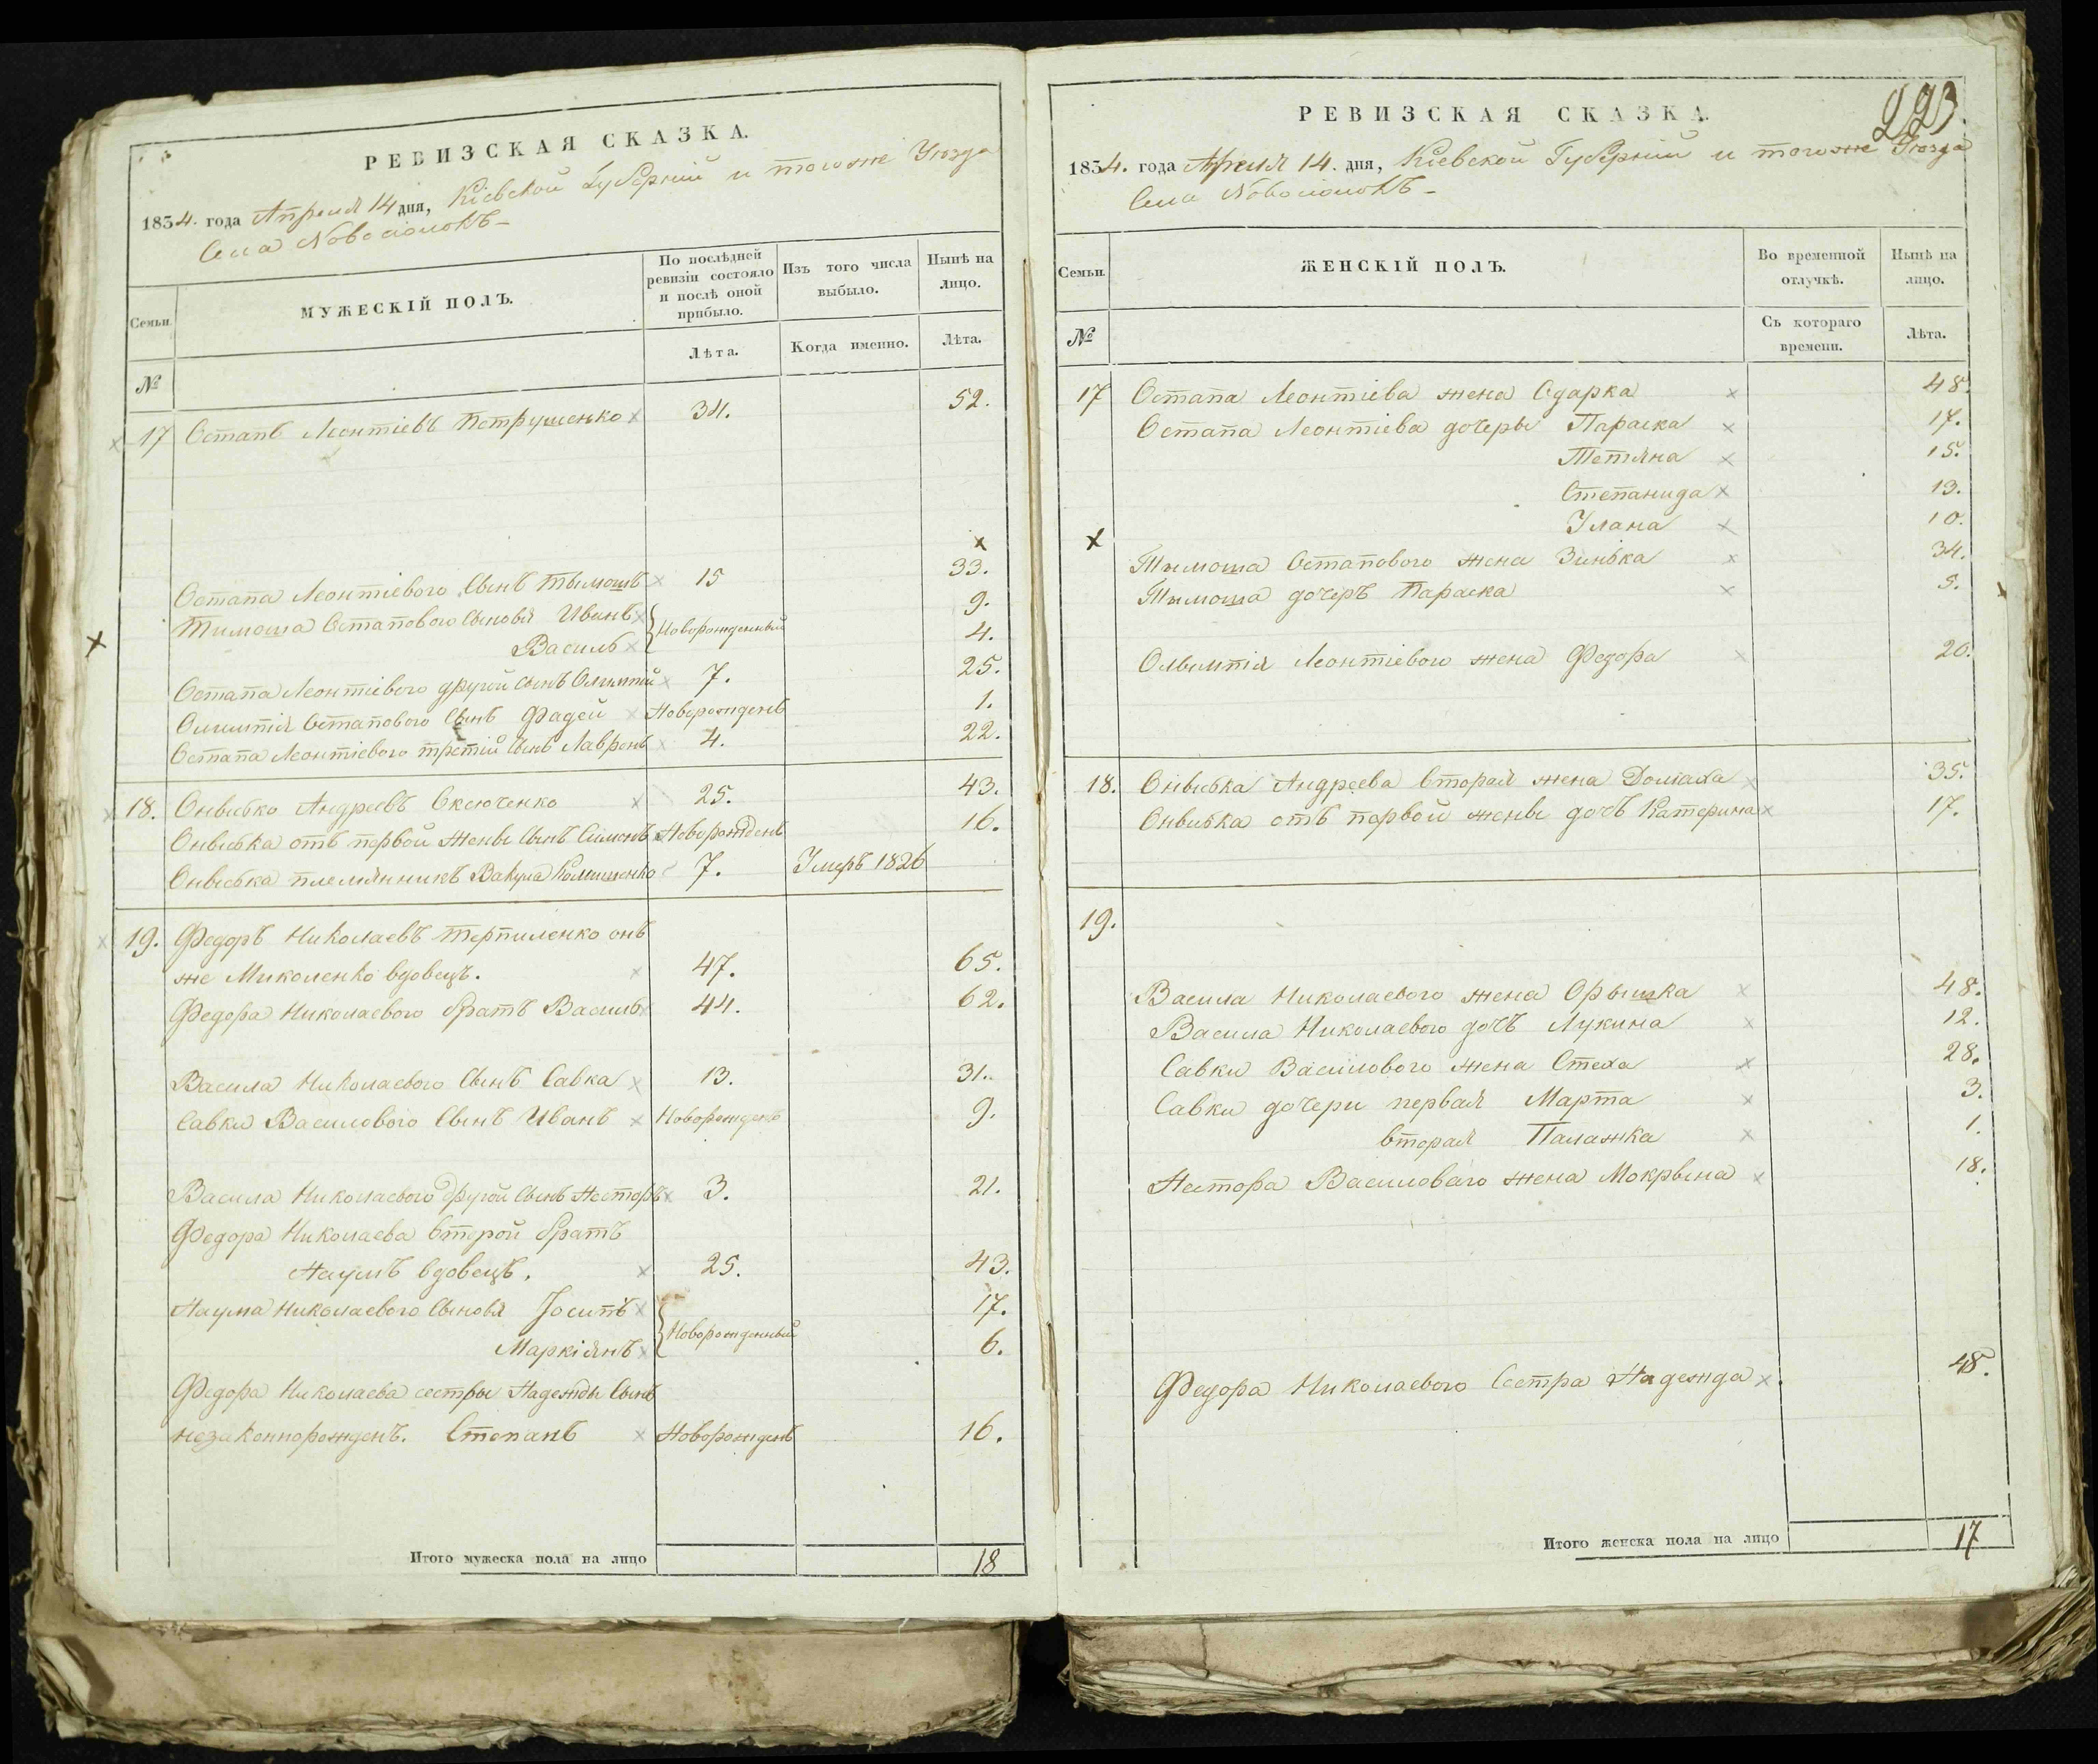 РЕВИЗСКАЯ СКАЗКА.
1834. года Апреля 14 дня, Кіевской Губерній и тогоже Уезда
Села Новосіолокъ
Семьи.
МУЖЕСКІЙ ПОЛЪ.
По послѣдней ревизіи состояло и послѣ оной прибыло.
Изъ того числа выбыло.
Нынѣ на лицо.
№
Лѣта.
Когда именно.
Лѣта.
17 Остапъ Леонтіевъ Петрушенко х 34. 52.
х
Остапа Леонтіевого Сынъ Тымошъ х 15 33.
Тимоша Остапового Сыновя Иванъ х Новорожденный 9.
Василь х 4.
Остапа Леонтіевого другой сынъ Олимпій х 7. 25.
Олимпія Остапового Сынъ Фадей х Новорожденъ 1.
Остапа Леонтіевого третій Сынъ Лавренъ х 4. 22.
18. Онысько Андреевъ Оксюченко х 25. 43.
Оныська отъ первой Жены Сынъ Симонъ Новорожденъ 16.
Оныська племянникъ Вакула 7. Умеръ 1826
19. Федоръ Николаевъ Терпиленко онъ
же Миколенко вдовецъ. х 47. 65.
Федора Николаевого братъ Василь х 44. 62.
Васила Николаевого Сынъ Савка х 13. 31.
Савки Василового Сынъ Иванъ х Новорожденъ 9.
Васила Николаевого другой Сынъ Несторъ х 3. 21.
Федора Николаева второй братъ
Наумъ вдовецъ. х 25. 43.
Наума Николаевого Сыновя Іосипъ х Новорожденный 17.
Маркіянъ х 6.
Федора Николаева сестры Надежды Сынъ
незаконнорожденъ. Степанъ х Новорожденъ 16.
Итого мужеска пола на лицо 18
223.
РЕВИЗСКАЯ СКАЗКА.
1834. года Апреля 14. дня, Кіевской Губерній и тогоже Уезда
Села Новосіолокъ
Семьи.
ЖЕНСКІЙ ПОЛЪ.
Во временной отлучкѣ.
Нынѣ на лицо.
№
Съ котораго времени.
Лѣта.
17 Остапа Леонтіева жена Одарка х 48.
Остапа Леонтіева дочеры Параска х 17.
Тетяна х 15.
Степанида х 13.
Улана х 10.
х
Тымоша Остапового жена Зинька х 34.
Тымоша дочеръ Параска х 5.
Олымпія Леонтіевого жена Федора х 20.
18. Оныська Андреева вторая жена Домаха х 35.
Оныська отъ первой жены дочъ Катерина х 17.
19.
Васила Николаевого жена Орышка х 48.
Васила Николаевого дочъ Лукина х 12.
Савки Василового жена Стеха х 28.
Савки дочери первая Марта х 3.
вторая Палажка х 1.
Нестора Василоваго жена Мокрына х 18.
Федора Николаевого Сестра Надежда х 48.
Итого женска пола на лицо 17